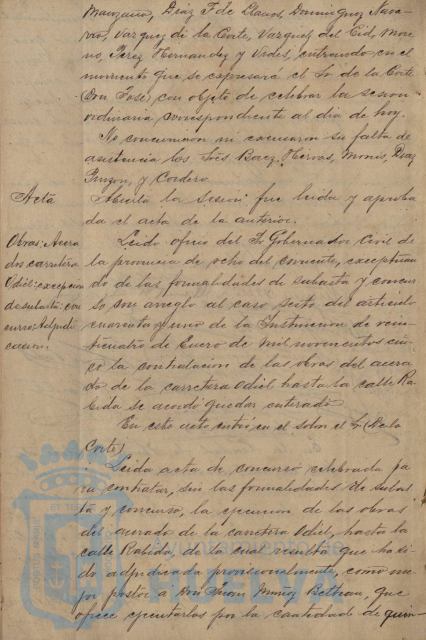 Manzano, Díaz F. de Claros, Dominguez Nava-
rro, Vazquez de la Corte, Vazquez del Cid, More-
no, Perez Hernandez y Vides, entrando en el
momento que se expresará el Sr. de la Corte
(Don José) con objeto de celebrar la sesion
ordinaria correspondiente al dia de hoy.
No concurrieron ni excusaron su falta de
asistencia los Sres Baez, Hervas, Monis, Diaz
Pinzon, y Cordero.
Acta
Abierta la sesion fue leida y aproba-
da el acta de la anterior.
Obras: Acera-
dos carretera
Odiel: excepcion
de subasta: con
curso: Adjudi-
cacion.
Leido oficio del Sr Gobernador Civil de
la provincia de ocho del corriente, exceptuan-
do de las formalidades de subasta y concur-
so con arreglo al caso sexto del articulo
cuarenta y uno de la Instruccion de vein-
ticuatro de Enero de mil novecientos cin-
co la contratacion de las obras del acera-
do de la carretera Odiel hasta la calle Ra-
bida se acordó quedar enterado.
En este acto entró en el salon el Sr. (De la
Corte)
Leida acta de concurso celebrada pa-
ra contratar, sin las formalidades de subas-
ta y concurso, la ejecucion de las obras
del acerado de la carretera Odiel, hasta la
calle Rabida, de la cual resulta que ha si-
do adjudicada provisionalmente, como me-
jor postor a Don Juan Muñoz Beltran, que
ofrece ejecutarlas por la cantidad de quin-
Ayuntamiento de
HUELVA